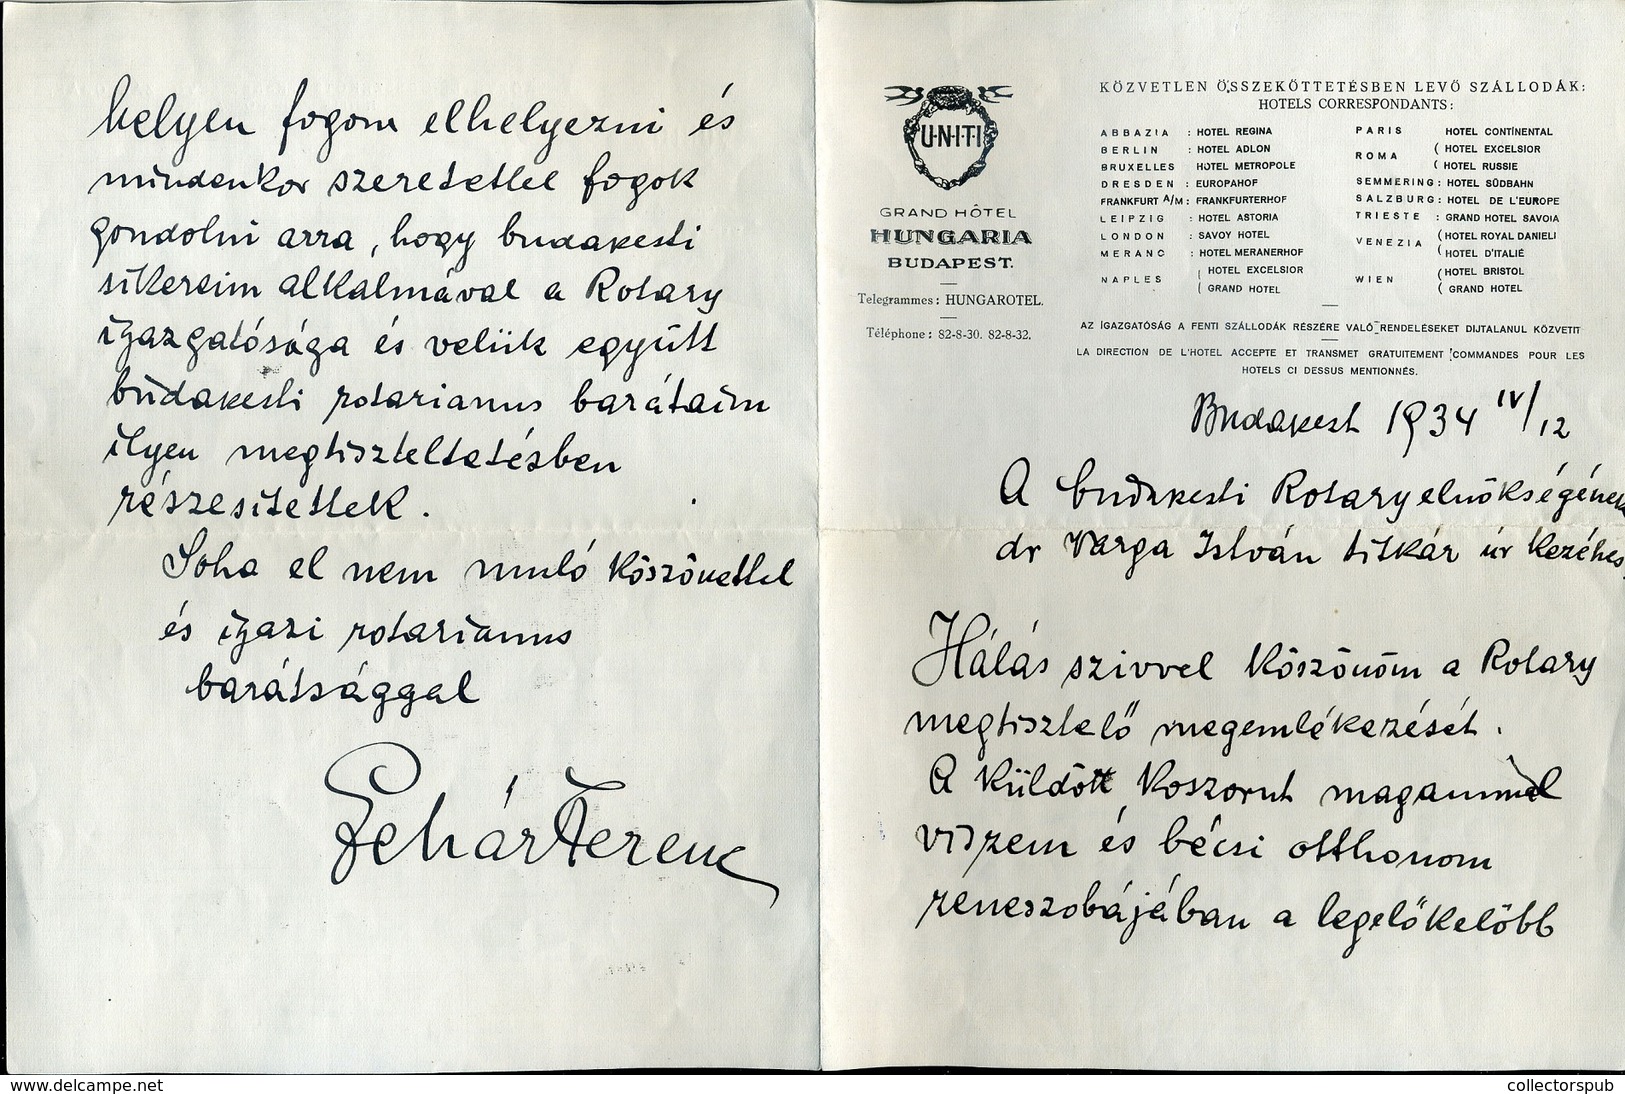 helyen fogom elhelyezni és
mindenkor szeretettel fogok
gondolni arra, hogy budapesti
sikereim alkalmával a Rotary
igazgatósága és velük együtt
budapesti rotarianus barátaim
ilyen megtiszteltetésben
részesítettek.
Soha el nem muló köszönettel
és igazi rotarianus
barátsággal
Lehár Ferenc
UNITI
GRAND HÔTEL
HUNGARIA
BUDAPEST.
Telegrammes: HUNGAROTEL.
Téléphone: 82-8-30. 82-8-32.
KÖZVETLEN ÖSSZEKÖTTETÉSBEN LEVŐ SZÁLLODÁK:
HOTELS CORRESPONDANTS:
ABBAZIA : HOTEL REGINA
BERLIN : HOTEL ADLON
BRUXELLES HOTEL METROPOLE
DRESDEN : EUROPAHOF
FRANKFURT A/M: FRANKFURTERHOF
LEIPZIG : HOTEL ASTORIA
LONDON : SAVOY HOTEL
MERANO : HOTEL MERANERHOF
NAPLES ( HOTEL EXCELSIOR
( GRAND HOTEL
PARIS HOTEL CONTINENTAL
ROMA ( HOTEL EXCELSIOR
( HOTEL RUSSIE
SEMMERING: HOTEL SÜDBAHN
SALZBURG: HOTEL DE L'EUROPE
TRIESTE : GRAND HOTEL SAVOIA
VENEZIA ( HOTEL ROYAL DANIELI
( HOTEL D'ITALIÉ
WIEN ( HOTEL BRISTOL
( GRAND HOTEL
AZ IGAZGATÓSÁG A FENTI SZÁLLODÁK RÉSZÉRE VALÓ RENDELÉSEKET DIJTALANUL KÖZVETIT
LA DIRECTION DE L'HOTEL ACCEPTE ET TRANSMET GRATUITEMENT COMMANDES POUR LES
HOTELS CI DESSUS MENTIONNÉS.
Budapest 1934 IV/12
A budapesti Rotary elnökségének
dr Varga István titkár úr kezéhez
Hálás szivvel köszönöm a Rotary
megtisztelő megemlékezését.
A küldött koszorut magammal
viszem és bécsi otthonom
zeneszobájában a legelőkelőbb
www.delcampe.net
collectorspub